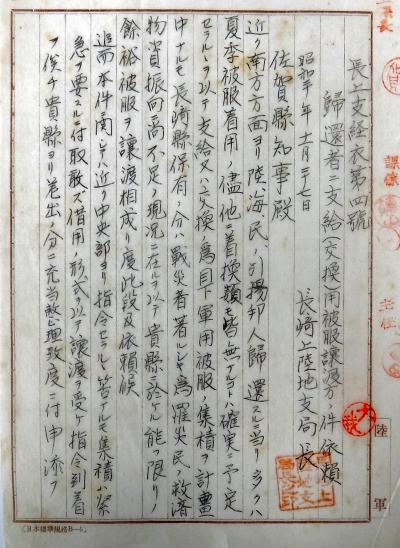 長上支経衣第四號
歸還者ニ支給(交換)用被服譲渡方ノ件依頼
昭和二十年十一月二十七日
長崎上陸地支局長
佐賀縣知事殿
近ク南方方面ヨリ陸、海、民、ノ引揚邦人歸還スルニ当リ多クハ
夏季被服着用ノ儘他ニ着換類モ皆無ナコトハ確実ニ予定
セラルルヲ以テ支給又ハ交換ノ為目下軍用被服ノ集積ヲ計畫
中ナルモ長崎縣保有ノ分ハ戦災者著ルシキ為罹災民ノ救済
物資振向尚不足ノ現況ニ在ルヲ以テ貴縣ニ於ケル能フ限リノ
餘裕被服ヲ譲渡相成リ度此段及依頼候
追而本件ニ関シテハ近ク中央部ヨリ指令セラルル筈ナルモ集積ハ緊
急ヲ要スルニ付取敢ズ借用ノ形式ヲ以テ譲渡ヲ受ケ指令到着
ヲ俟チ貴縣ヨリ差出ノ分ニ充当整理致度ニ付申添フ
陸軍
(日本標準規格B-5)